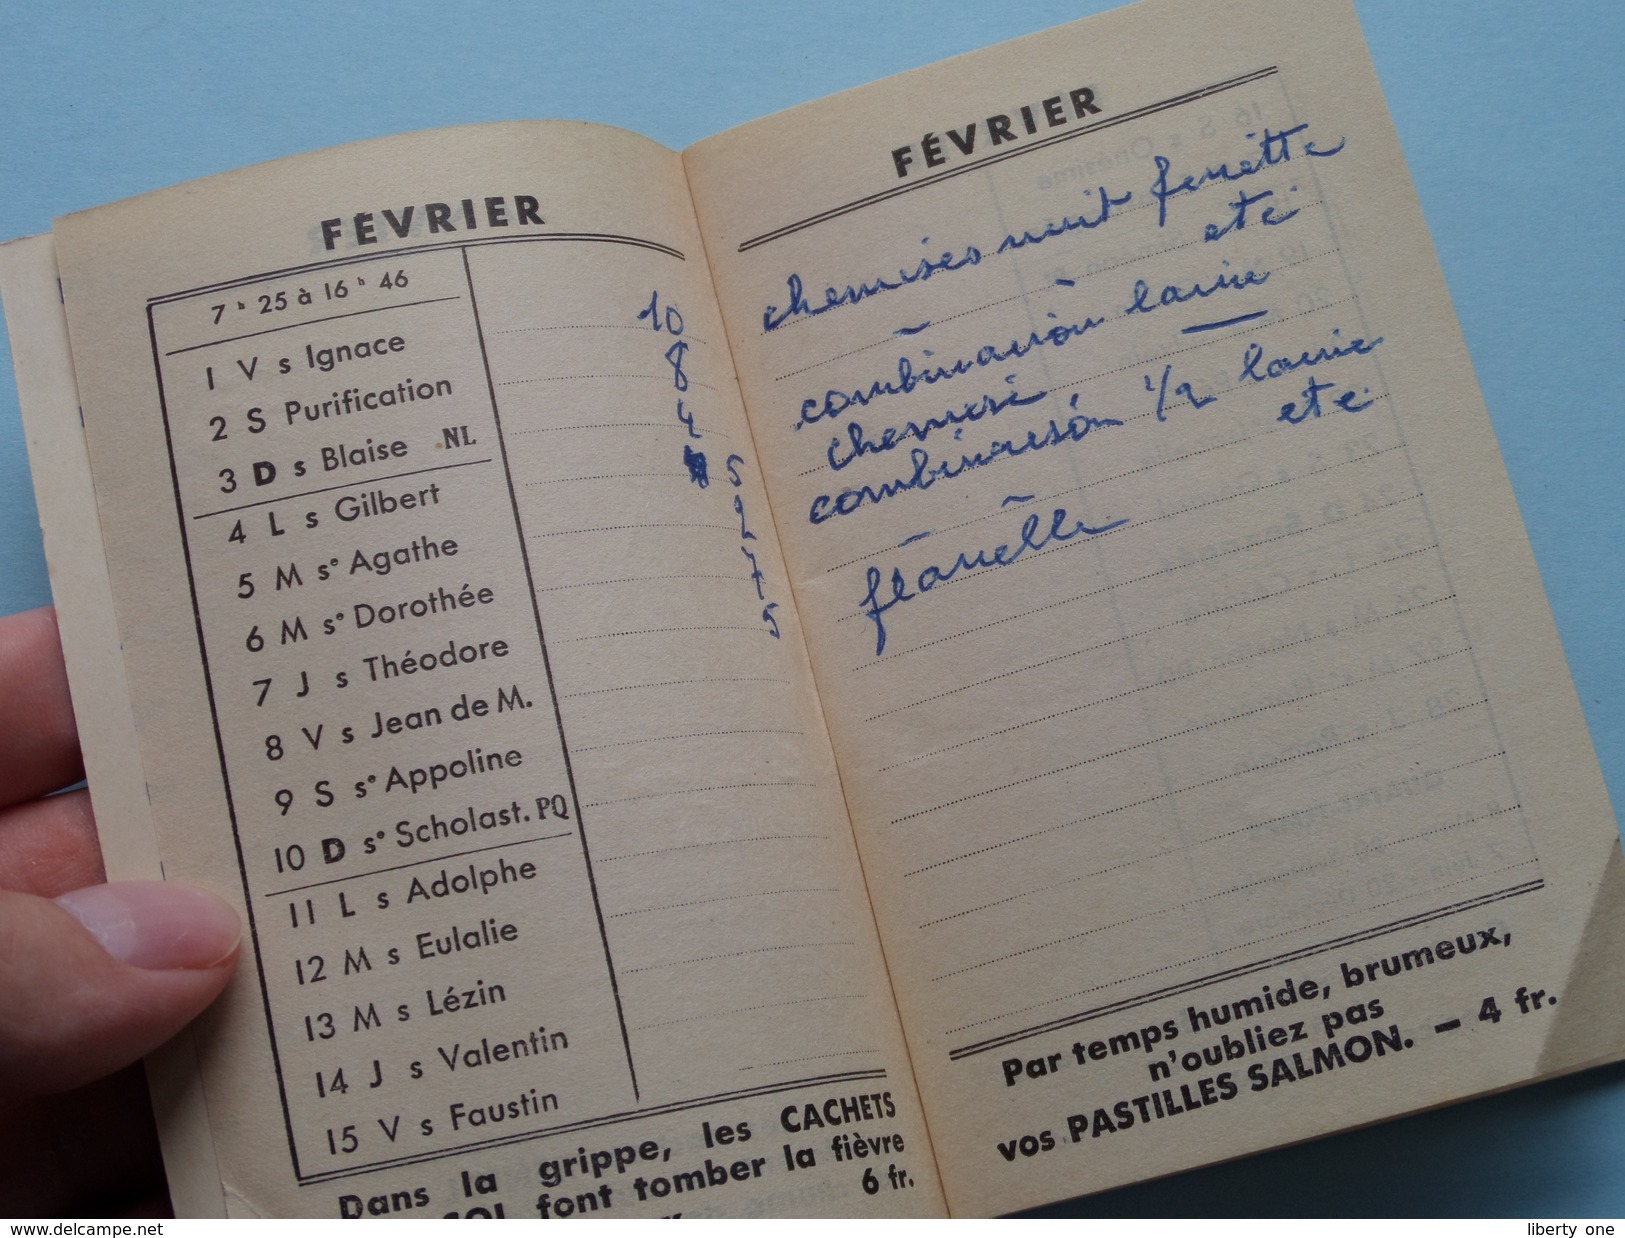 FÉVRIER
7 h 25 à 16 h 46
1 V s Ignace
2 S Purification
3 D s Blaise NL
4 L s Gilbert
5 M se Agathe
6 M se Dorothée
7 J s Théodore
8 V s Jean de M.
9 S se Appoline
10 D se Scholast. PQ
11 L s Adolphe
12 M s Eulalie
13 M s Lézin
14 J s Valentin
15 V s Faustin
10
8
4
5
2
7
5
Dans la grippe, les CACHETS
font tomber la fièvre
6 fr.
FÉVRIER
chemises nuit
ete
combinaison laine
chemise —
combinaison 1/2 laine
ete
flanelle
Par temps humide, brumeux,
n'oubliez pas
vos PASTILLES SALMON. — 4 fr.
www.delcampe.net
liberty one